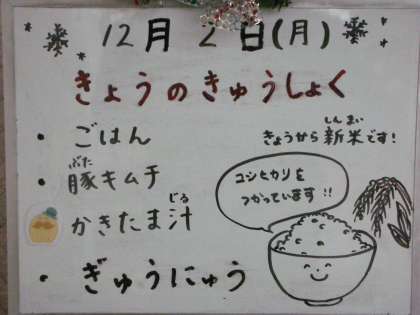 12月2日(月)
きょうのきゅうしょく
・ごはん
きょうから新米です!
しんまい
・豚キムチ
ぶた
かきたま汁
じる
・ぎゅうにゅう
コシヒカリを
つかっています!!